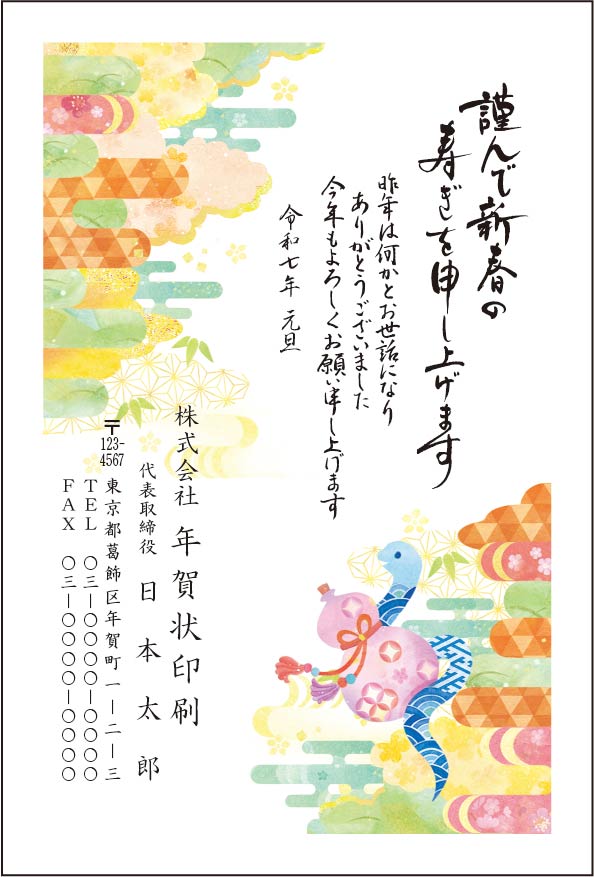 謹んで新春の
寿ぎを申し上げます
昨年は何かとお世話になり
ありがとうございました
今年もよろしくお願い申し上げます
令和七年 元旦
株式会社 年賀状印刷
代表取締役 日本太郎
〒123-4567
東京都葛飾区年賀町一ー二ー三
TEL 〇三ー〇〇〇〇ー〇〇〇〇
FAX 〇三ー〇〇〇〇ー〇〇〇〇